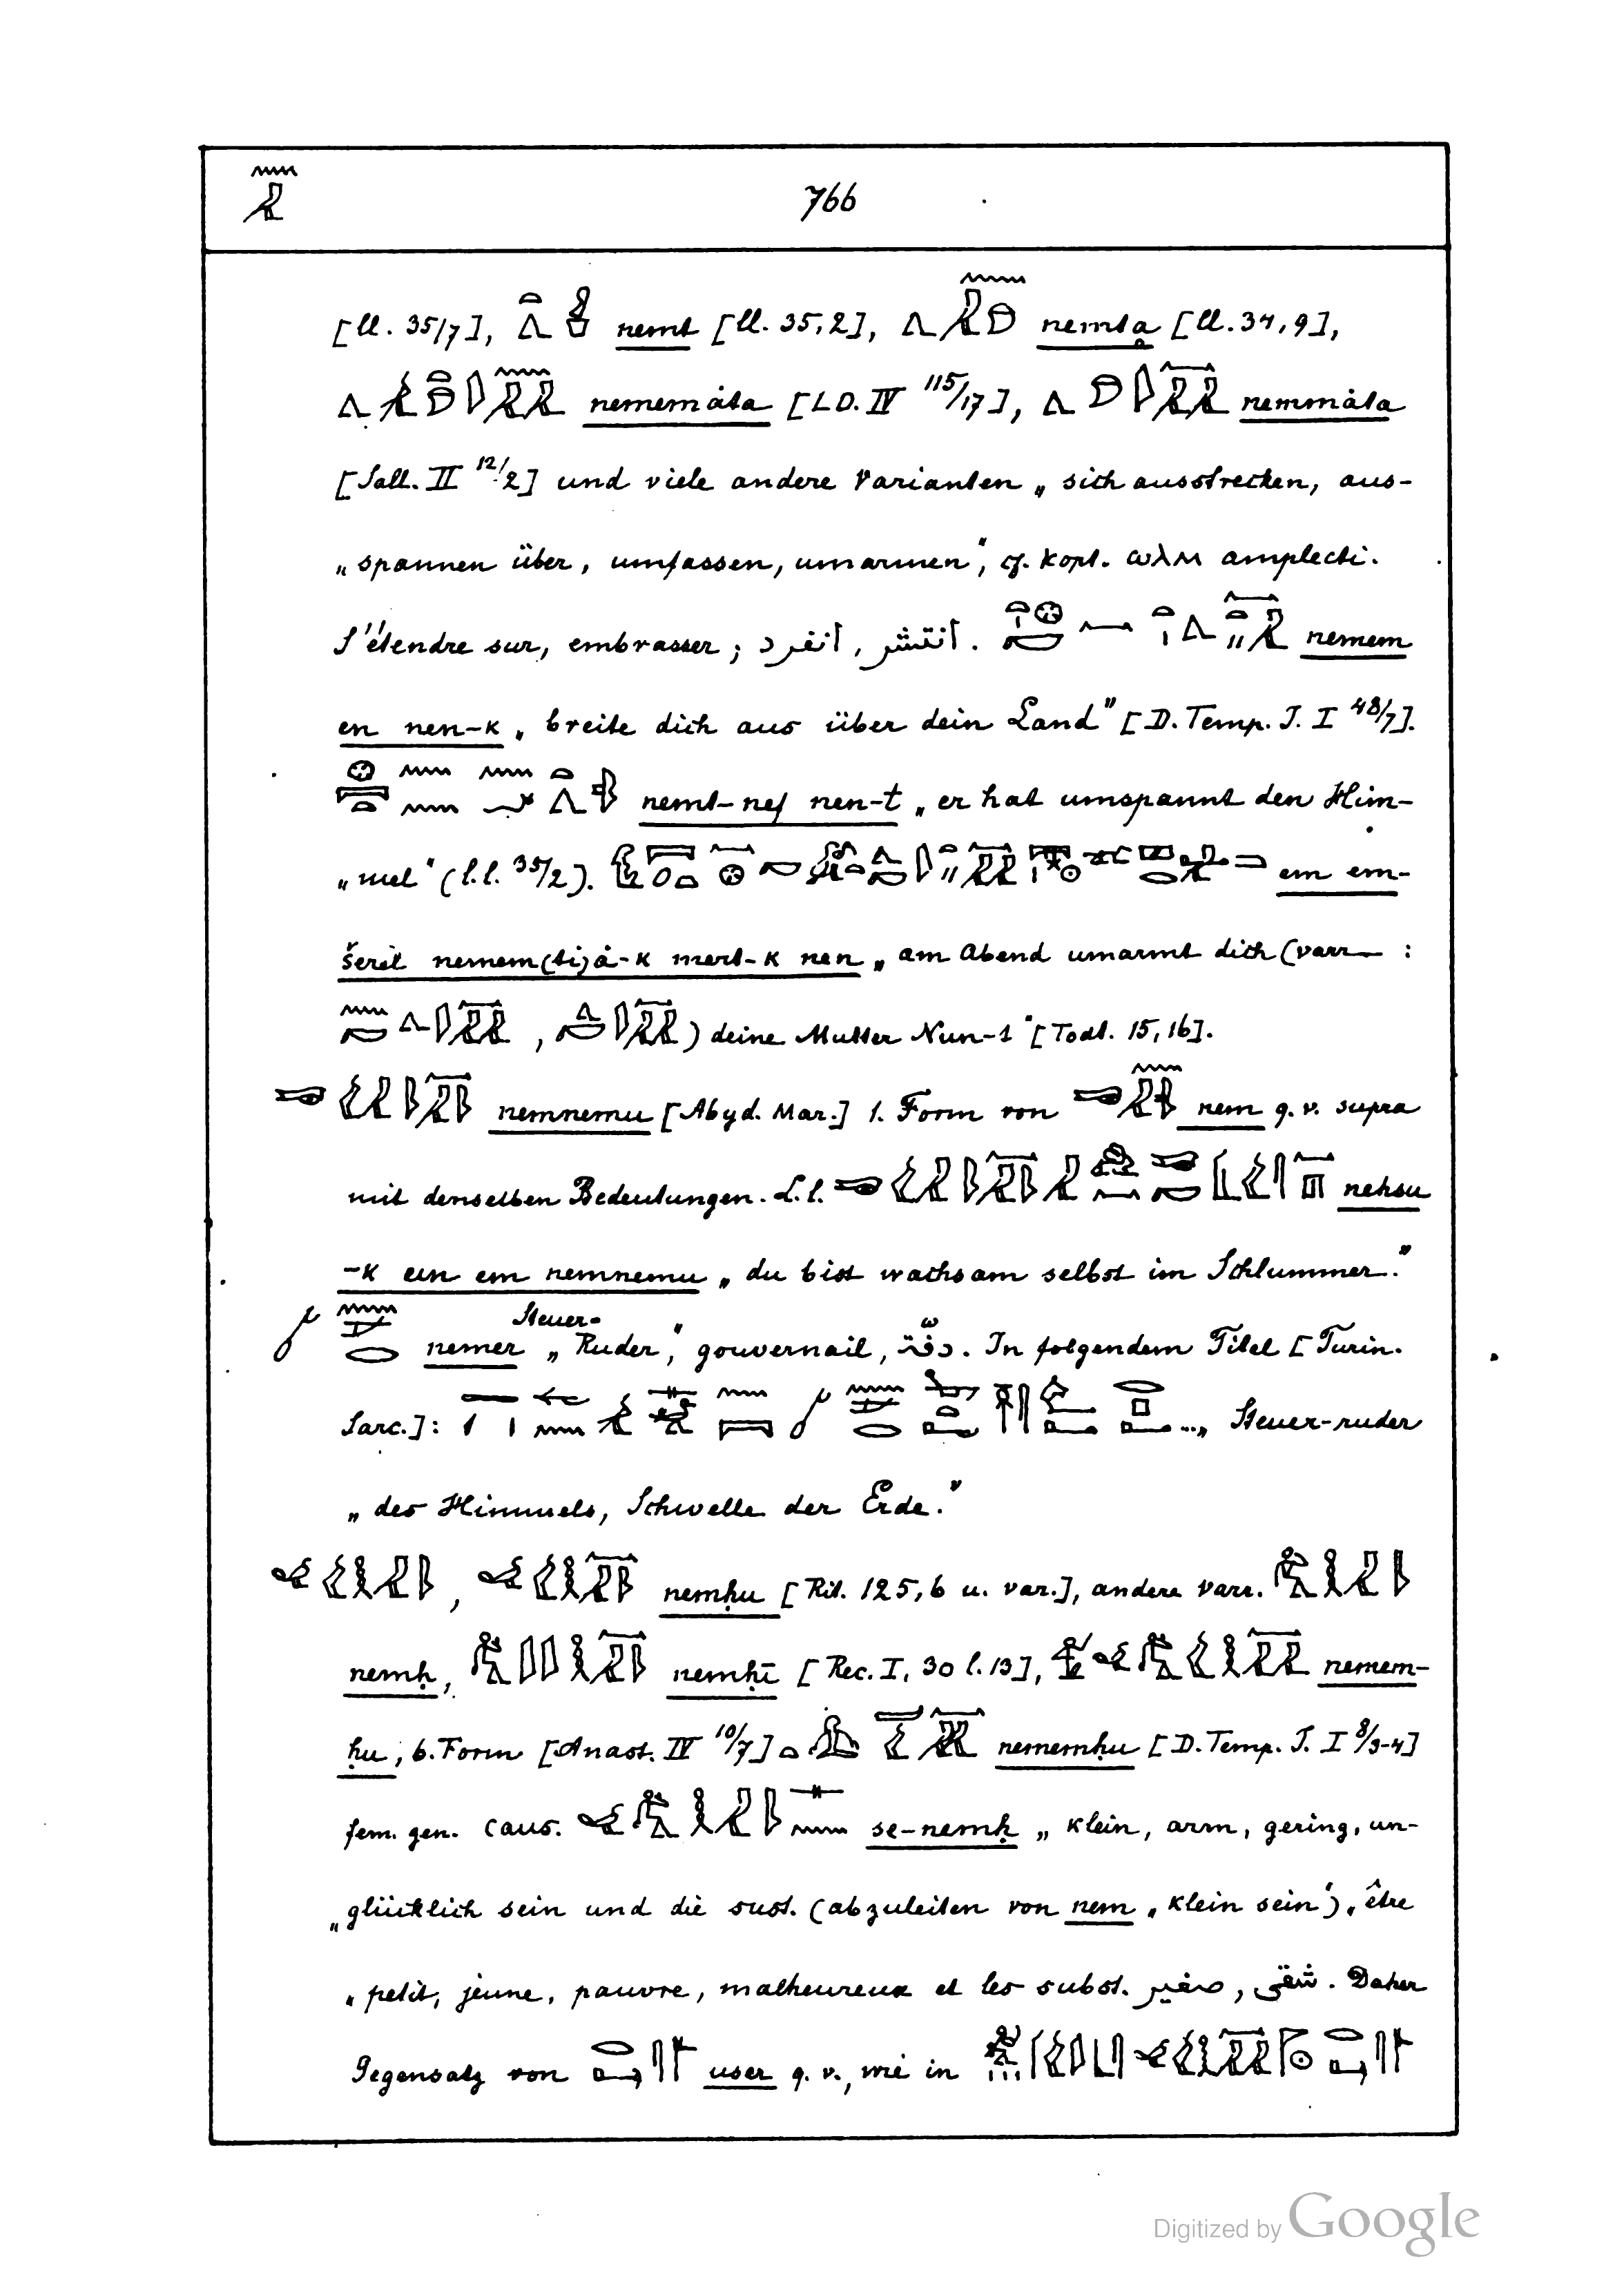 766
[ll. 35/7], nemt [ll. 35,2], nemta̤ [ll. 34,9],
nememȧta [LD. IV 115/17], nemmȧta
[Sall. II 12/2] und viele andere Varianten „sich ausstrecken, aus-
„spannen über, umfassen, umarmen", cf. kopt. ωλм amplecti.
S'étendre sur, embrasser; انتشر , انفرد . nemem
en nen-k „breite dich aus über dein Land" [D. Temp. J. I 48/7].
nemt-nef nen-t „er hat umspannt den Him-
„mel" (l.l. 35/2). em em-
šerit nemem(ti)ȧ-k mert-k nen „am Abend umarmt dich (varr— :
, ) deine Mutter Nun-t" [Todt. 15,16].
nemnemu [Abyd. Mar.] 1. Form von nem q. v. supra
mit denselben Bedeutungen. L.l. nehsu
-k un em nemnemu „du bist wachsam selbst im Schlummer."
nemer „Steuer-Ruder", gouvernail, دفّة. In folgendem Titel [Turin.
Sarc.]: ...„ Steuer-ruder
„des Himmels, Schwelle der Erde."
, nemḥu [Rit. 125,6 u. var.], andere varr.
nemḥ, nemḥī [Rec. I, 30 l. 13], nemem-
ḥu, 6. Form [Anast. IV 10/7] nememḥu [D. Temp. J. I 8/3-4]
fem. gen. Caus. se-nemḥ „klein, arm, gering, un-
„glücklich sein und die sust. (abzuleiten von nem „klein sein"), être
„petit, jeune, pauvre, malheureux et les subst. شقى , صغير . Daher
Gegensatz von user q. v., wie in
Digitized by Google